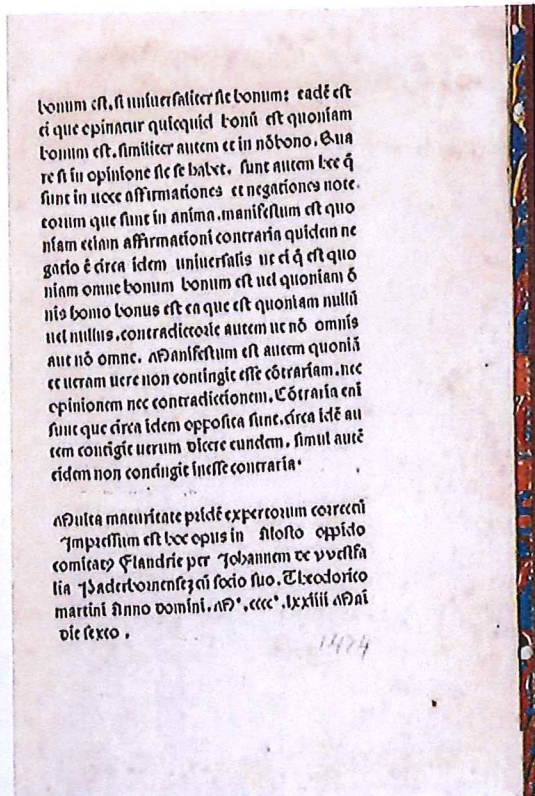 bonum est. si universaliter sic bonum: eadē est
ei que opinatur quicquid bonū est quoniam
bonum est. similiter autem et in nōbono. Qua
re si in opinione sic se habet. sunt autem hec q̄
sunt in uoce affirmationes et negationes note.
eorum que sunt in anima. manifestum est quo
niam etiam affirmationi contraria quidem ne
gatio ē circa idem uniuersalis ut ei q̄ est quo
niam omne bonum bonum est uel quoniam ō
nis homo bonus est ea que est quoniam nullū
uel nullus. contradictorie autem ut nō omnis
aut nō omne. Manifestum est autem quoniā
et ueram uere non contingit esse cōtrariam. nec
opinionem nec contradictionem. Cōtraria eni
sunt que circa idem opposita sunt. circa idē au
tem contigit uerum dicere eundem. simul autē
eidem non contingit inesse contraria.
Multa maturitate pridē expertorum correcti
Impressum est hoc opus in Alosto oppido
comitatꝰ Flandrie per Johannem de vvestfa
lia Paderbornenseȝ cū socio suo. Theodorico
martini Anno domini. Mº. ccccº. lxxiiii Mai
die sexto.
1474